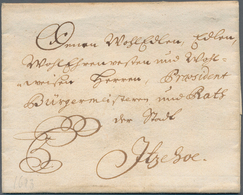 Denen WohlEdlen, Edlen,
WohlEhrenvesten und Woll-
weisen Herren, Præsident
Bürgermeisteren und Rath
der Stadt
Itzehoe.